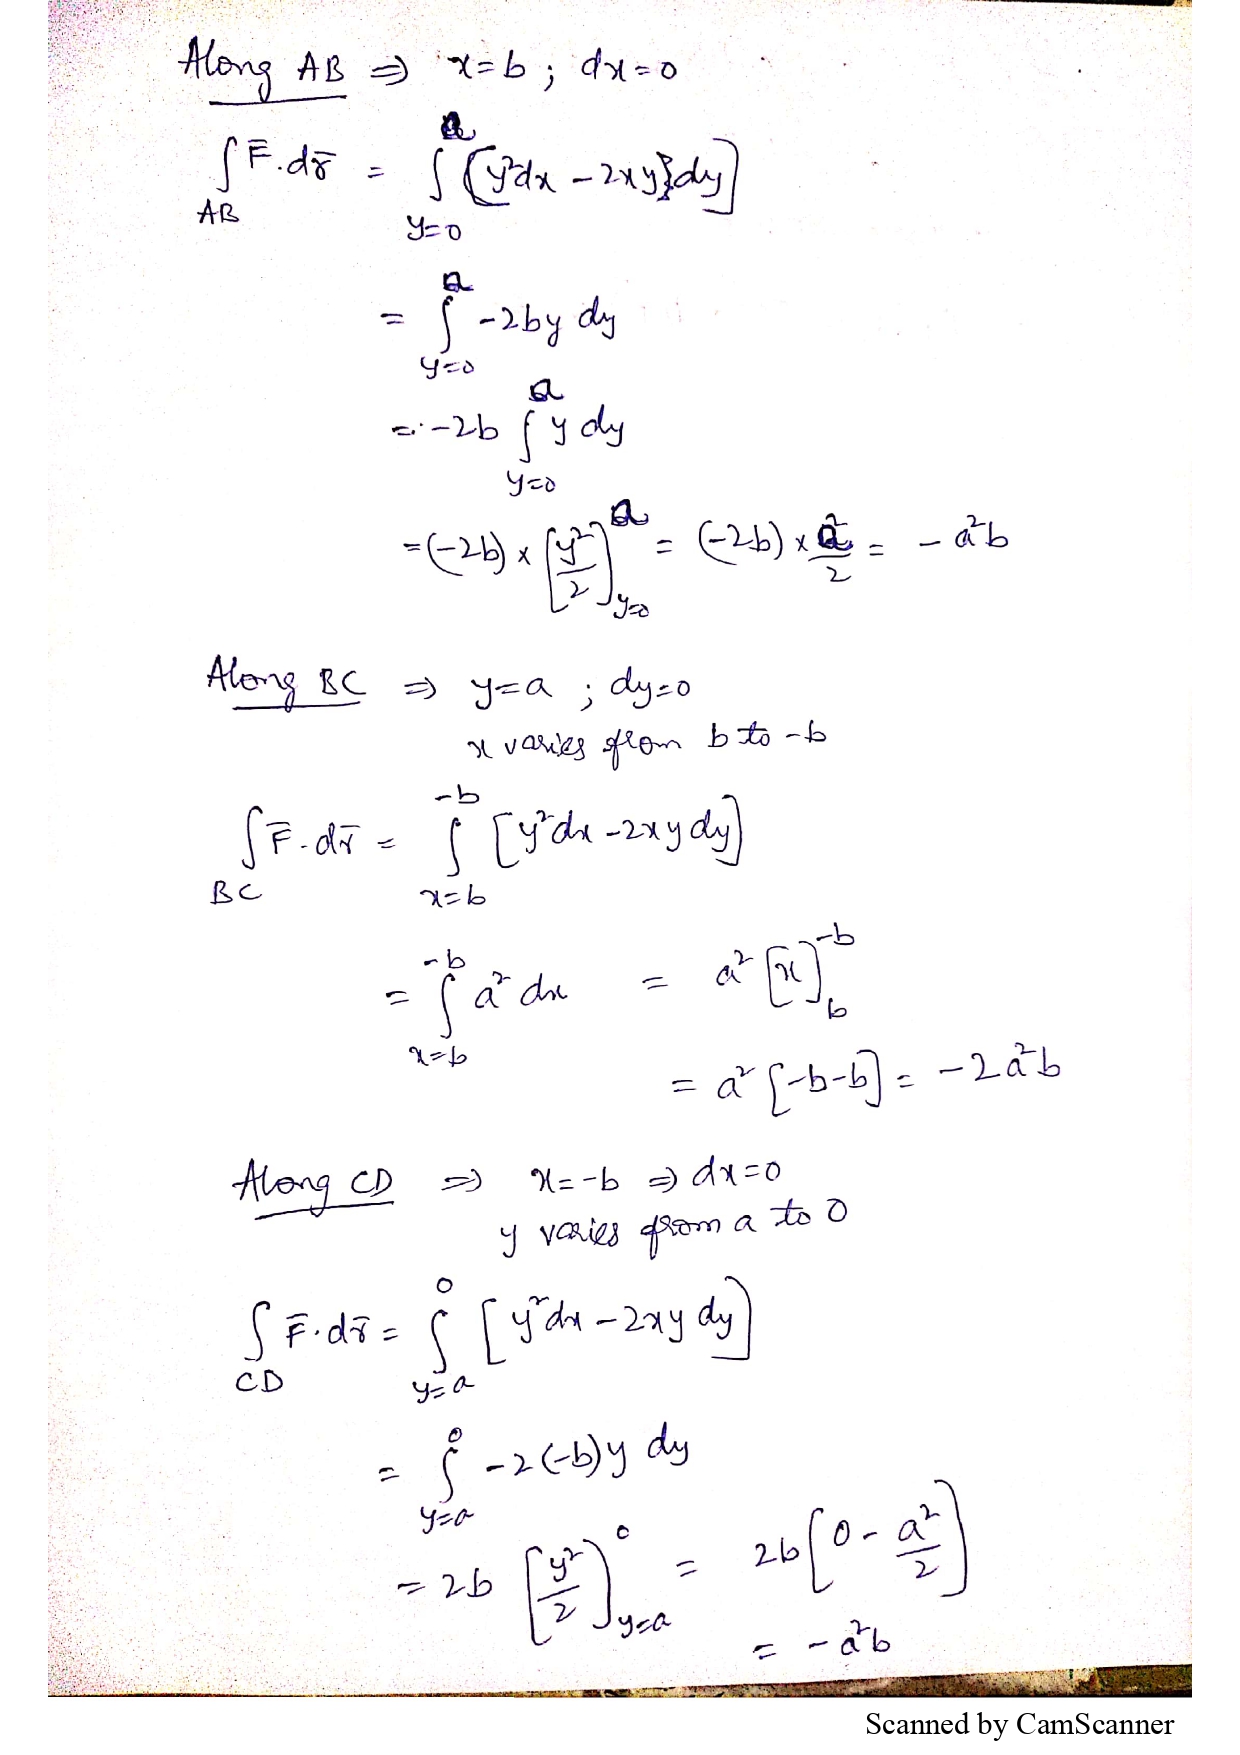 Along AB ⇒ x=b ; dx=0
∫_AB F̄.dr̄ = ∫_{y=0}^{a} [y²dx - 2xy}dy]
= ∫_{y=0}^{a} -2by dy
= -2b ∫_{y=0}^{a} y dy
= (-2b) × [y²/2]_{y=0}^{a} = (-2b) × a²/2 = - a²b
Along BC ⇒ y=a ; dy=0
x varies from b to -b
∫_BC F̄.dr̄ = ∫_{x=b}^{-b} [y²dx - 2xy dy]
= ∫_{x=b}^{-b} a² dx = a² [x]_{b}^{-b}
= a² [-b-b] = -2a²b
Along CD ⇒ x=-b ⇒ dx=0
y varies from a to 0
∫_CD F̄.dr̄ = ∫_{y=a}^{0} [y²dx - 2xy dy]
= ∫_{y=a}^{0} -2(-b)y dy
= 2b [y²/2]_{y=a}^{0} = 2b [0 - a²/2]
= - a²b
Scanned by CamScanner